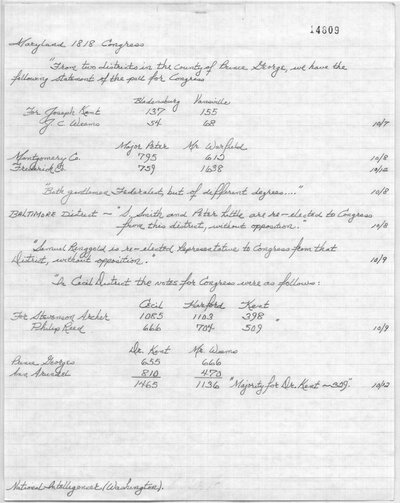 14809
Maryland 1818 Congress
"From two districts in the county of Prince George, we have the
following statement of the poll for Congress
Bladensburg Vansville
For Joseph Kent 137 155
J. C. Weems 34 68 10/7
Major Peter Mr. Warfield
Montgomery Co. 795 612 10/8
Frederick Co. 759 1638 10/12
"Both gentlemen Federalists, but of different degrees...." 10/8
BALTIMORE District — "S. Smith and Peter Little are re-elected to Congress
from this district, without opposition." 10/8
"Samuel Ringgold is re-elected Representative to Congress from that
District, without opposition." 10/9
"In Cecil District the votes for Congress were as follows:
Cecil Harford Kent
For Stevenson Archer 1085 1103 398
Philip Reed 666 704 509 " 10/9
Dr. Kent Mr. Weems
Prince Georges 655 666
Ann Arundel 810 470
1465 1136 "Majority for Dr. Kent — 329." 10/12
National Intelligencer (Washington).